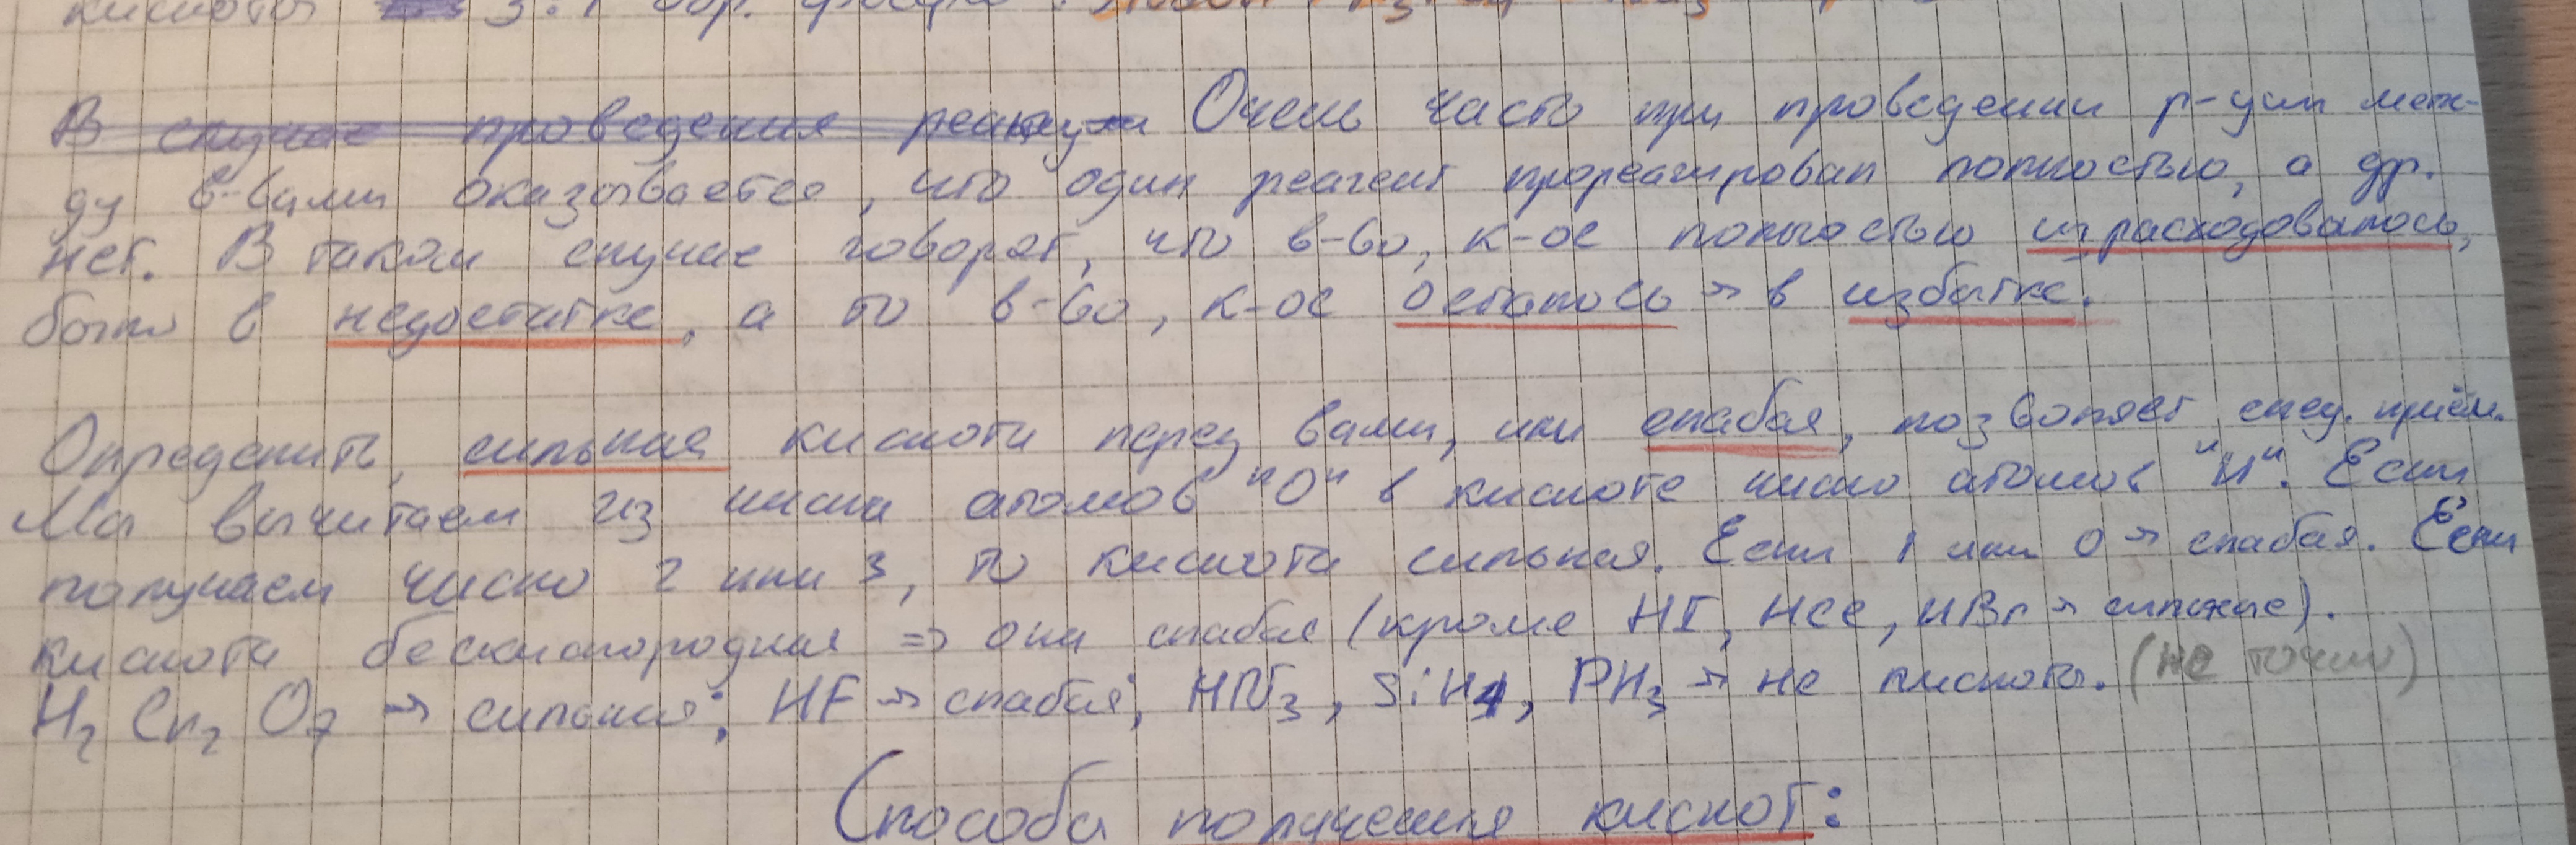 кислоты 3:1 обр.
В случае проведения реакции Очень часто при проведении р-ции меж-
ду в-вами оказывается, что один реагент прореагировал полностью, а др.
нет. В таком случае говорят, что в-во, к-ое полностью израсходовалось,
было в недостатке, а то в-во, к-ое осталось → в избытке.
Определить, сильная кислота перед вами, или слабая, позволяет спец. приём.
Мы вычитаем из числа атомов "O" в кислоте число атомов "H". Если
получаем число 2 или 3, то кислота сильная. Если 1 или 0 → слабая. Если
кислота бескислородная => она слабая (кроме HI, HCl, HBr → сильные).
H₂Cr₂O₇ → сильная; HF → слабая; HN₃, SiH₄, PH₃ → не кислоты. (не точно)
Способы получения кислот: